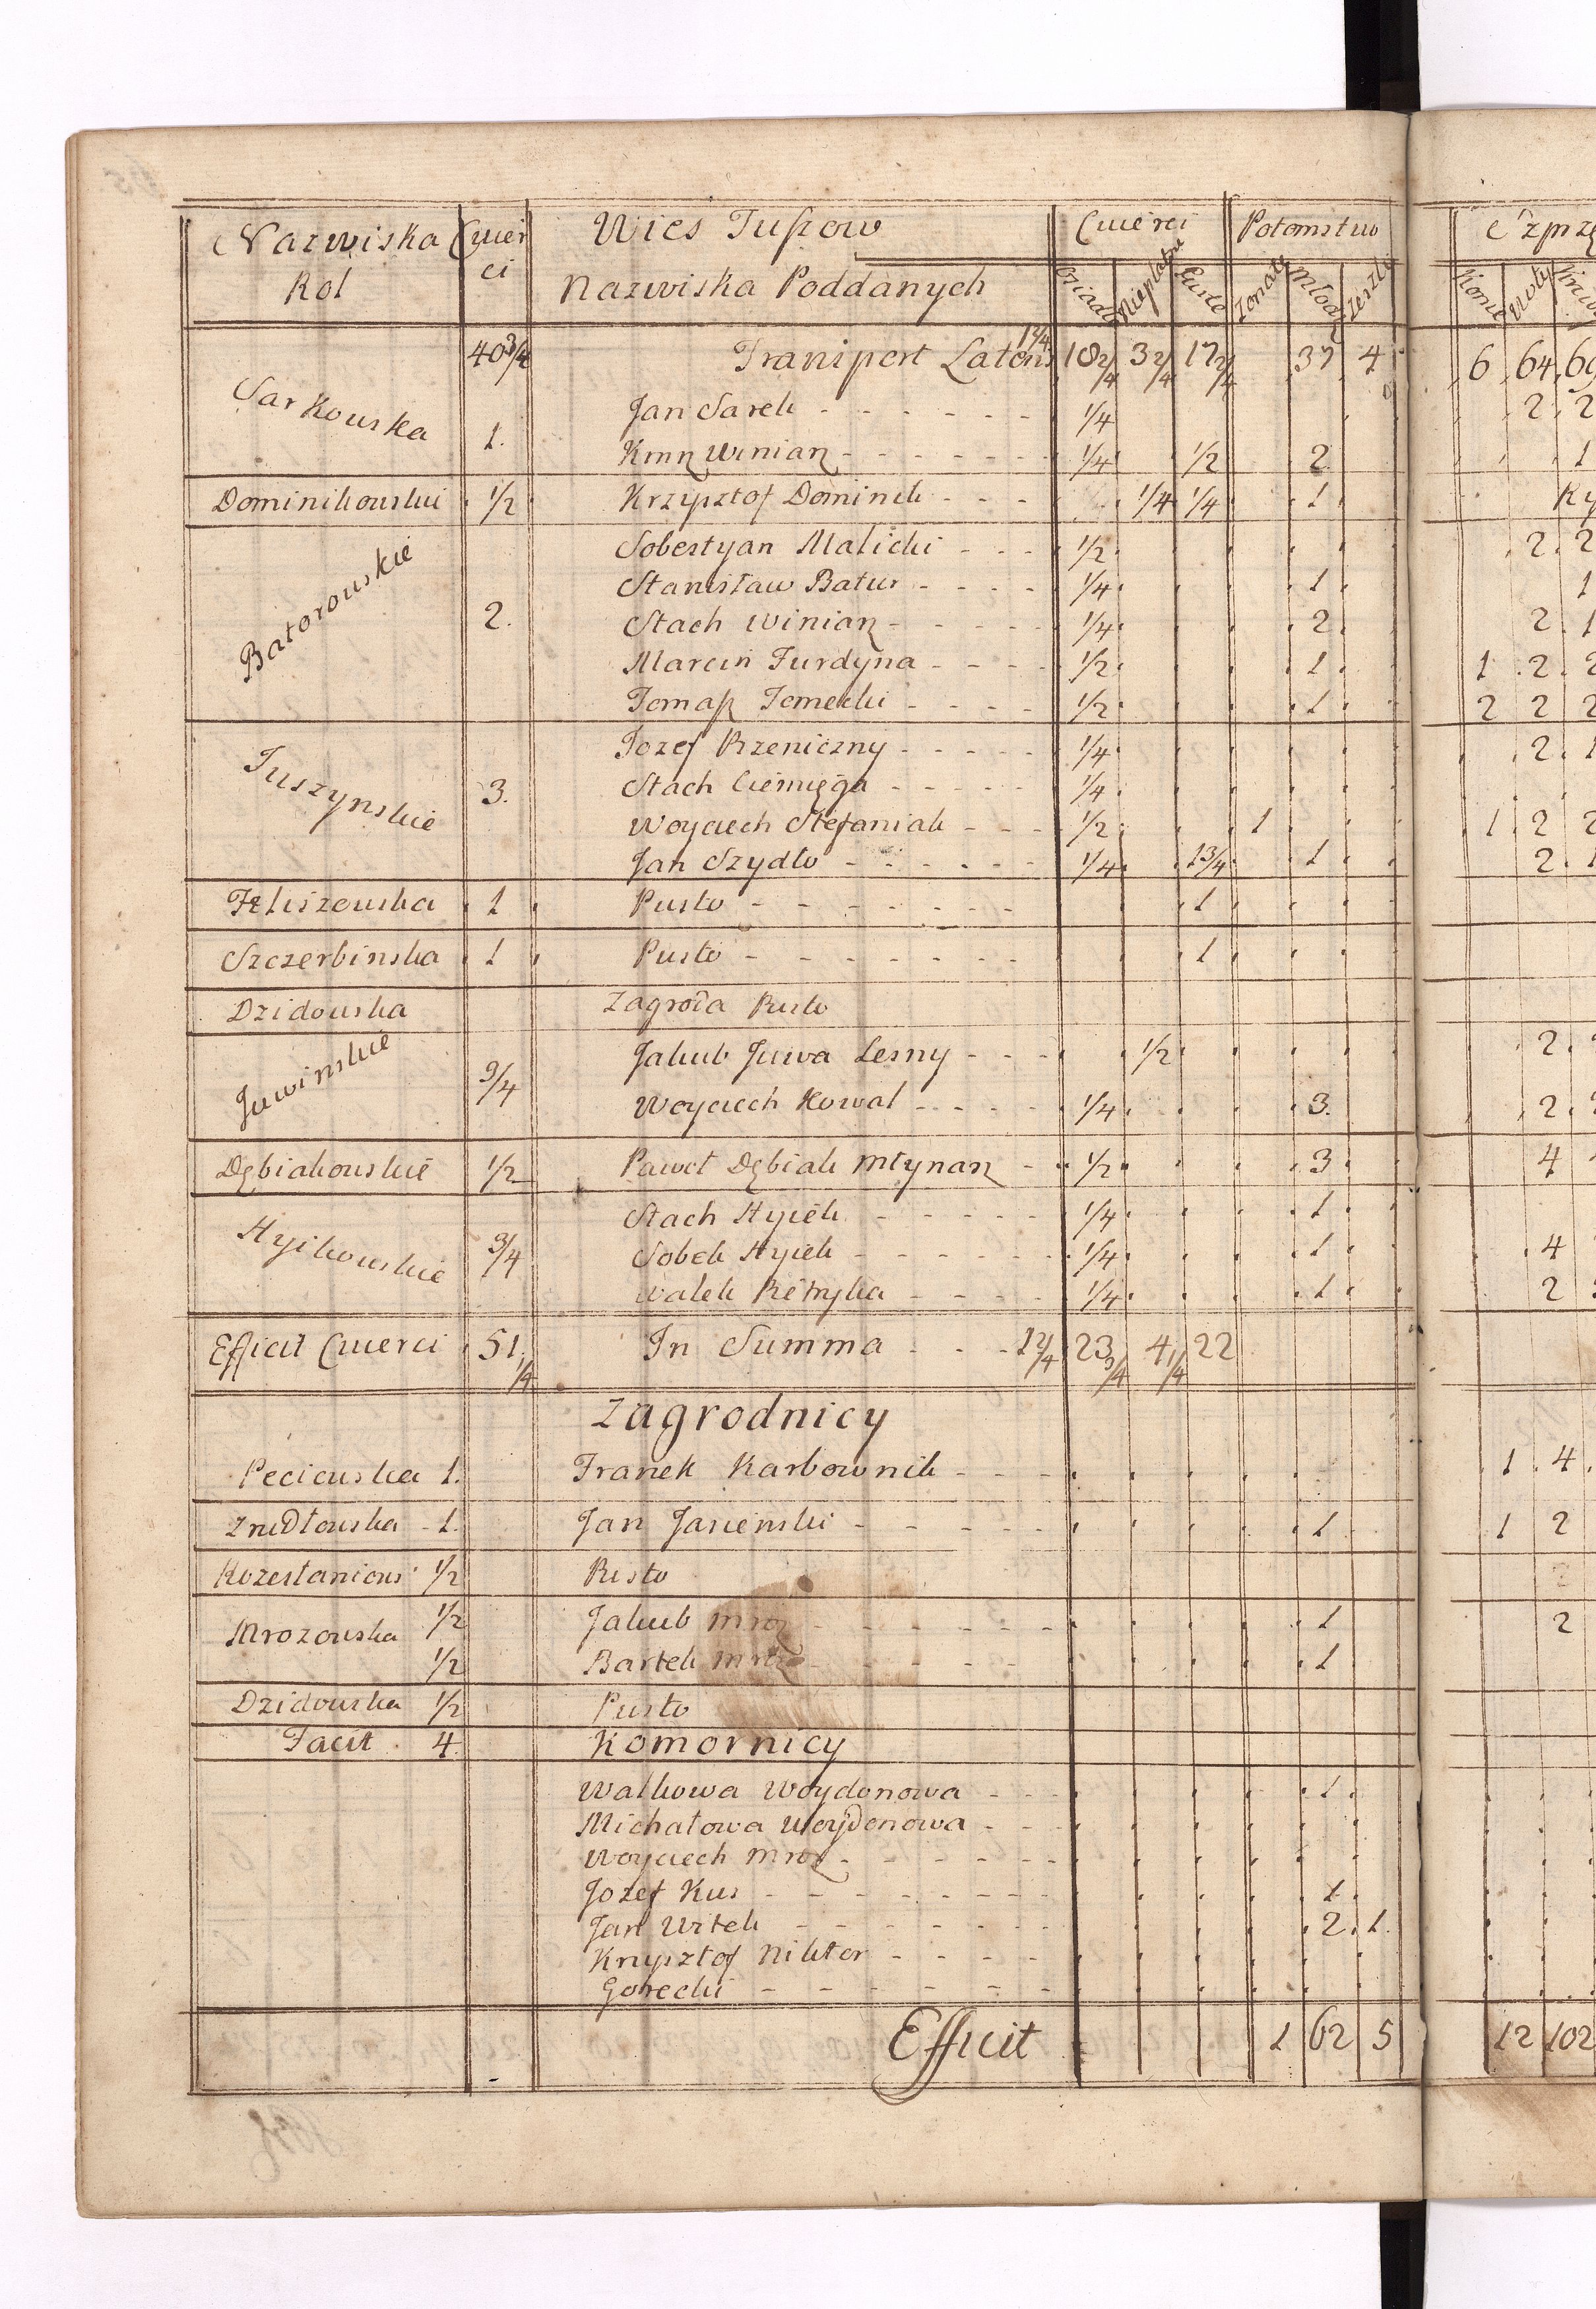 Nazwiska Rol Cwierci Wies Tuszow Cwierci Potomstwo
Nazwiska Poddanych Osiadł Nieplatne Puste Zonate Młodz Zeszli Konie Woły
40 3/4 Transport Lateris 1 2/4 18 2/4 3 2/4 17 2/4 37 4 6 64
Sarkowska 1. Jan Sarek 1/4 2 2
Krzysz Winiarz 1/4 1/2 2 1
Dominikowski 1/2 Krzysztof Dominek 1/4 1/4 1
Batorowskie 2. Sobestyan Malicki 1/2 2 2
Stanisław Batur 1/4 1 1
Stach Winiarz 1/4 2 2 1
Marcin Furdyna 1/2 1 1 2 2
Tomasz Tomecki 1/2 1 2 2 2
Tuszynskie 3. Jozef Rzeniczny 1/4 2 1
Stach Ciemięga 1/4
Woyciech Stefaniak 1/2 1 1 2 2
Jan Szydło 1/4 1 3/4 1 2 1
Feliszowska 1 Pusto 1
Szczerbinska 1 Pusto 1
Dzidowska Zagroda Pusto
Juwinskie 3/4 Jakub Juwa Lesny 1/2 2
Woyciech Kowal 1/4 3 2
Dębiakowskie 1/2 Paweł Dębiak Młynarz 1/2 3 4
Hyikowskie 3/4 Stach Hyiek 1/4 1
Sobek Hyiek 1/4 1 4
Walek Retryka 1/4 1 2
Efficit Cwierci 51 1/4 In Summa 1 2/4 23 3/4 4 1/4 22
Zagrodnicy
Peciowska 1. Franek Karbownik 1 4
Znidłowska 1. Jan Jasienski 1 1 2
1/2 Pusto
Mrozowska 1/2 Jakub Mroz 1 2
1/2 Bartek Mroz 1
Dzidowska 1/2 Pusto
Facit 4 Komornicy
Walkowa Woydonowa 1
Michałowa Woydonowa
Woyciech Mroz
Jozef Kus 1
Jan Witek 2 1
Krzysztof Nikter
Gorecki
Efficit 1 62 5 12 102